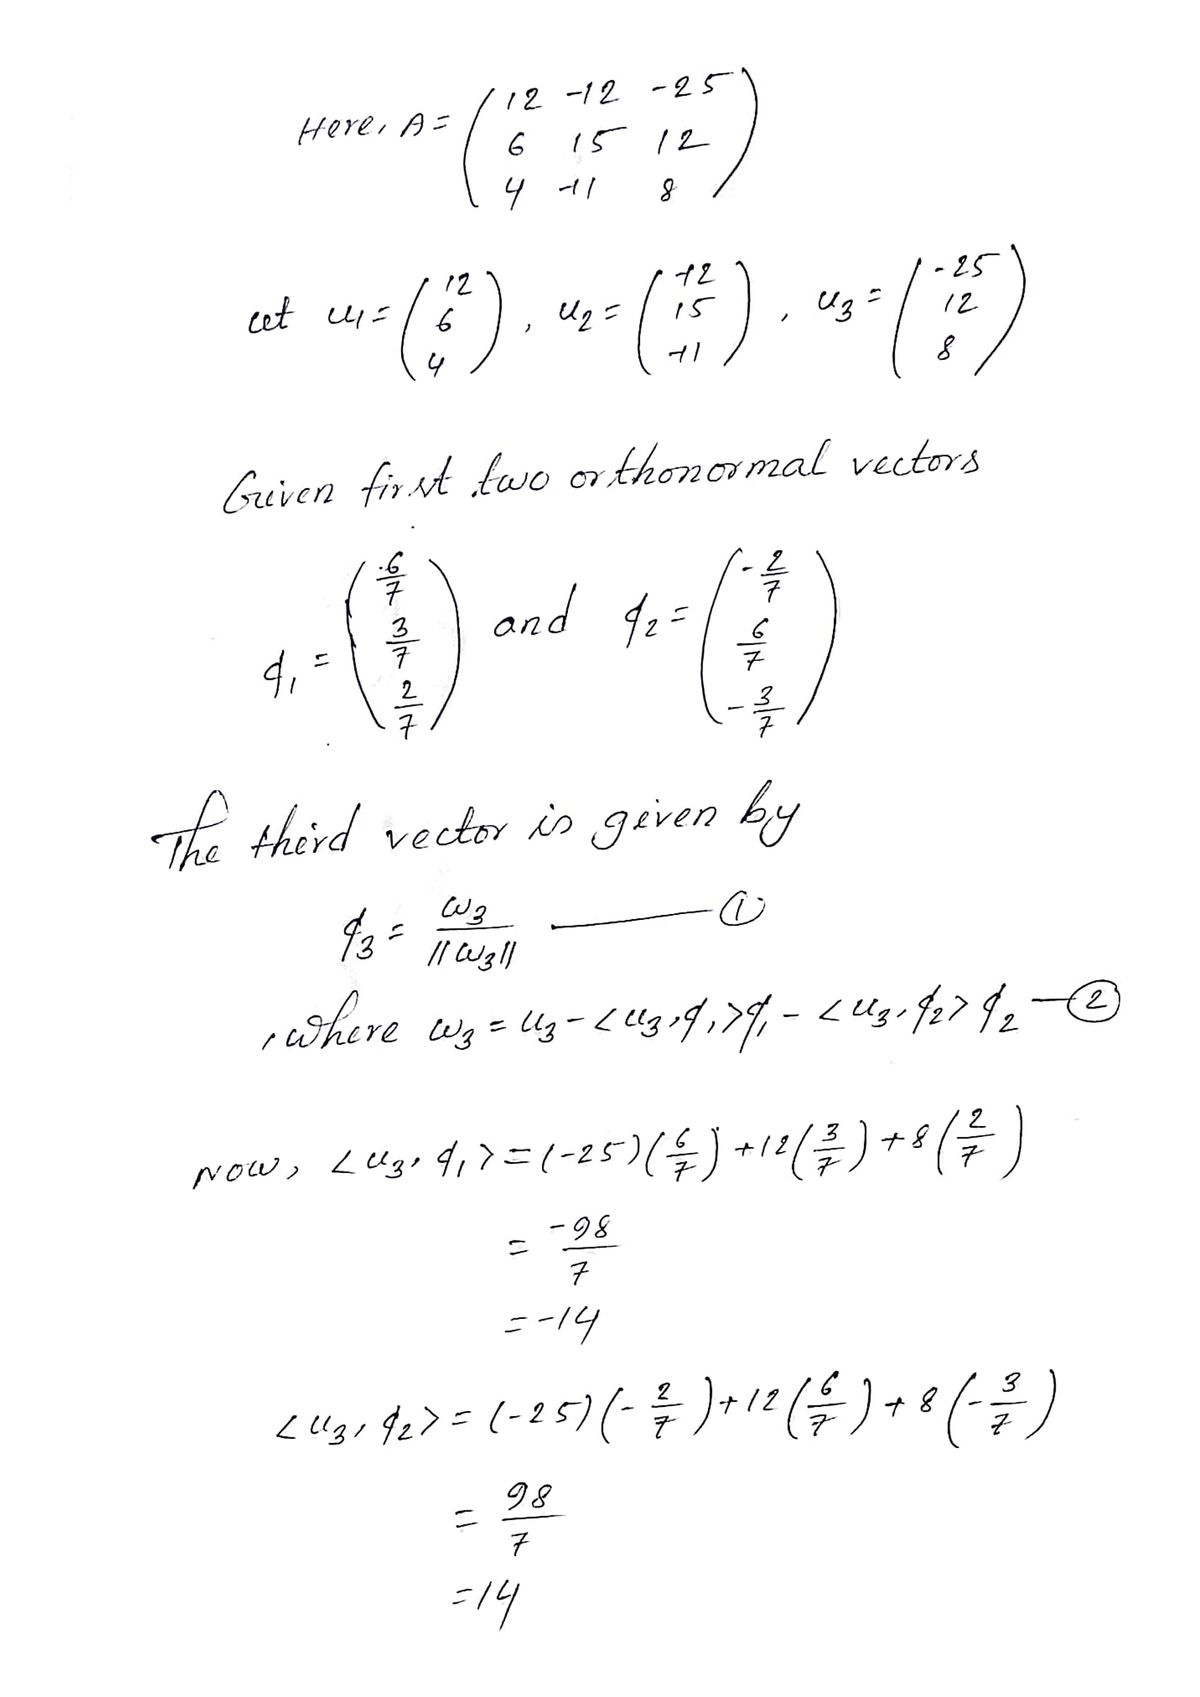 Here, A = ( 12 -12 -25
6 15 12
4 -11 8 )
Let u1 = ( 12 6 4 ), u2 = ( -12 15 -11 ), u3 = ( -25 12 8 )
Given first two orthonormal vectors
q1 = ( 6/7 3/7 2/7 ) and q2 = ( -2/7 6/7 -3/7 )
The third vector is given by
q3 = w3/||w3|| —— ①
where w3 = u3 - <u3, q1> q1 - <u3, q2> q2 — ②
Now, <u3, q1> = (-25)(6/7) + 12(3/7) + 8(2/7)
= -98/7
= -14
<u3, q2> = (-25)(-2/7) + 12(6/7) + 8(-3/7)
= 98/7
= 14